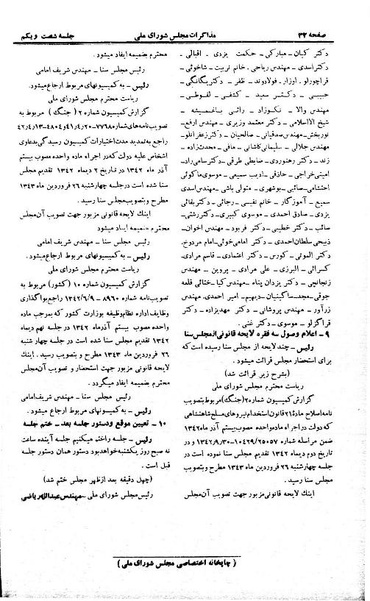 صفحه ۳۲
مذاکرات مجلس شورای ملی
جلسه شصت و یکم
دکتر کیان - مبارکی - حکمت یزدی - اقبالی -
اسدی - مهندس ریاحی - خانم تربیت - شاخوئی -
قراچورلو - اوزار - فولادوند - ظفر - دکتر یگانگی -
حبیبی - دکتر سعید -
مهندس والا - نکوزاد - رامبد -
شیخ الاسلامی - دکتر معتمد وزیری - مهندس ارفع -
نوربخش - مهندس صدقیانی - صالحیان - دکتر زعفرانلو -
مهندس جلالی - سلیمانی کاشانی - مافی - محدث زاده -
زند - دکتر رهنوردی - ضابطی طرقی - دکتر سامی راد -
امینی خراجی - حاذقی - ادیب سمیعی - موسوی ماکوئی
احتشامی - صائب - بوشهری - متولی باشی - مهندس اسدی
سمیع - آموزگار - خانم نفیسی - رجائی - دکتر بقائی
یزدی - صادق احمدی - موسوی کبیری - دکتر رشتی -
صائب - خطیبی - دکتر فربود - مهندس اخوان -
ذبیحی - سلطان احمدی - دکتر امامی خوئی - امام مردوخ -
دکتر الموتی - کورس - احتشامی - قاسم مرادی -
کسرائی - البرزی - علی مرادی - پروین - مهندس
زنجانچی - دکتر یزدان پناه - مهندس کیا - ختائی قلمه
جوقی - مجد - ساگینیان - دیهیم - امیر احمدی - مهندس
زرآور - مهندس پروشانی - دکتر مهدیزاده - دکتر
قراگزلو - موسوی - دکتر غنی
۹ - اعلام وصول سه فقره لایحه قانونی از مجلس سنا
رئیس - چند لایحه از مجلس سنا رسیده است که
برای استحضار مجلس قرائت میشود.
(بشرح زیر قرائت شد)
ریاست محترم مجلس شورای ملی
گزارش کمیسیون شماره ۲۰ (جنگ) مربوط بتصویب
نامه اصلاح ماده ۲۱ قانون استخدام نیروهای مسلح شاهنشاهی
که دولت در اجرای ماده واحده مصوب آذر ماه ۱۳۴۲
ضمن مراسله شماره ۲۵۰۵۷/۱۰۴۲۹ - ۱۳۴۲/۹/۳۰ و در
تاریخ دوم دیماه ۱۳۴۲ تقدیم مجلس سنا نموده است در
جلسه چهارشنبه ۲۶ فروردین ماه ۱۳۴۳ مطرح و بتصویب
مجلس سنا رسید.
اینک لایحه قانونی مزبور جهت تصویب آن مجلس
محترم بضمیمه ایفاد میشود.
رئیس مجلس سنا - مهندس شریف امامی
رئیس - به کمیسیونهای مربوط ارجاع میشود.
ریاست محترم مجلس شورای ملی
گزارش کمیسیون شماره ۲ (جنگ) مربوط به
تصویب نامه های شماره
راجع به تمدید مدت اختیارات کمیسیون رسیدگی بدعاوی
اشخاص علیه دولت که در اجراء ماده واحده مصوب بیستم
آذر ماه ۱۳۴۲ در تاریخ ۲ دیماه ۱۳۴۲ تقدیم مجلس
سنا شده است در جلسه چهارشنبه ۲۶ فروردین ماه ۱۳۴۳
مطرح و بتصویب مجلس سنا رسید.
اینک لایحه قانونی مزبور جهت تصویب آن مجلس
محترم بضمیمه ایفاد میشود.
رئیس مجلس سنا - مهندس شریف امامی
رئیس - به کمیسیونهای مربوط ارجاع میشود.
ریاست محترم مجلس شورای ملی
گزارش کمیسیون شماره ۱۰ (کشور) مربوط به
تصویب نامه شماره ۸۹۶۰ - ۱۳۴۲/۹/۹ راجع بواگذاری
وظایف اداره نظام وظیفه بوزارت کشور که بموجب ماده
واحده مصوب بیستم آذر ماه ۱۳۴۲ در جلسه نهم دیماه
۱۳۴۲ تقدیم مجلس سنا شده است در جلسه چهارشنبه
۲۶ فروردین ماه ۱۳۴۳ مطرح و بتصویب رسید. اینک
لایحه قانونی مزبور جهت استحضار و تصویب آن مجلس
محترم بضمیمه ایفاد میگردد.
رئیس مجلس سنا - مهندس شریف امامی
رئیس - به کمیسیونهای مربوط ارجاع میشود.
۱۰ - تعیین موقع و دستور جلسه بعد - ختم جلسه
رئیس - جلسه را ختم میکنیم جلسه آینده ساعت
نه صبح روز یکشنبه خواهد بود دستور همان دستور جلسه
قبل است.
(چهل دقیقه بعد از ظهر مجلس ختم شد)
رئیس مجلس شورای ملی - مهندس عبدالله ریاضی
(چاپخانه اختصاصی مجلس شورای ملی)